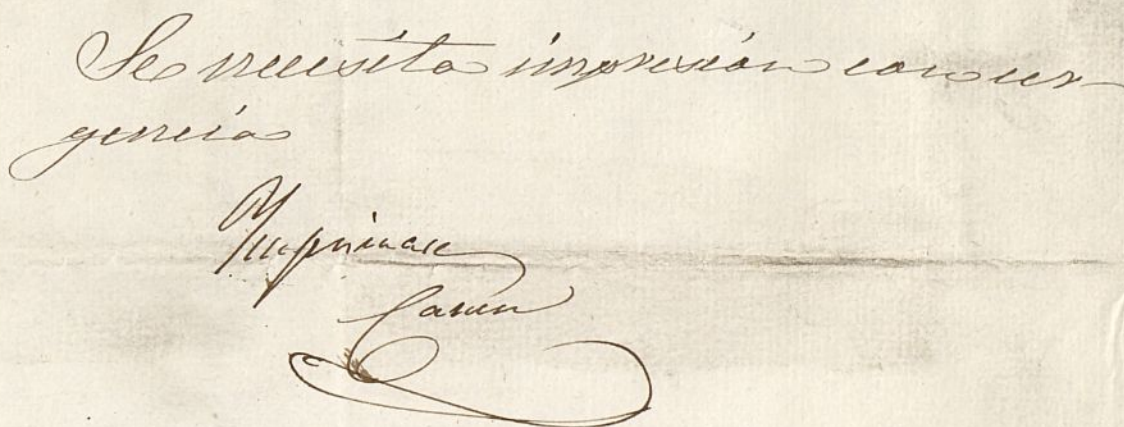 Se necesita impresión con ur-
gencia
Imprimase